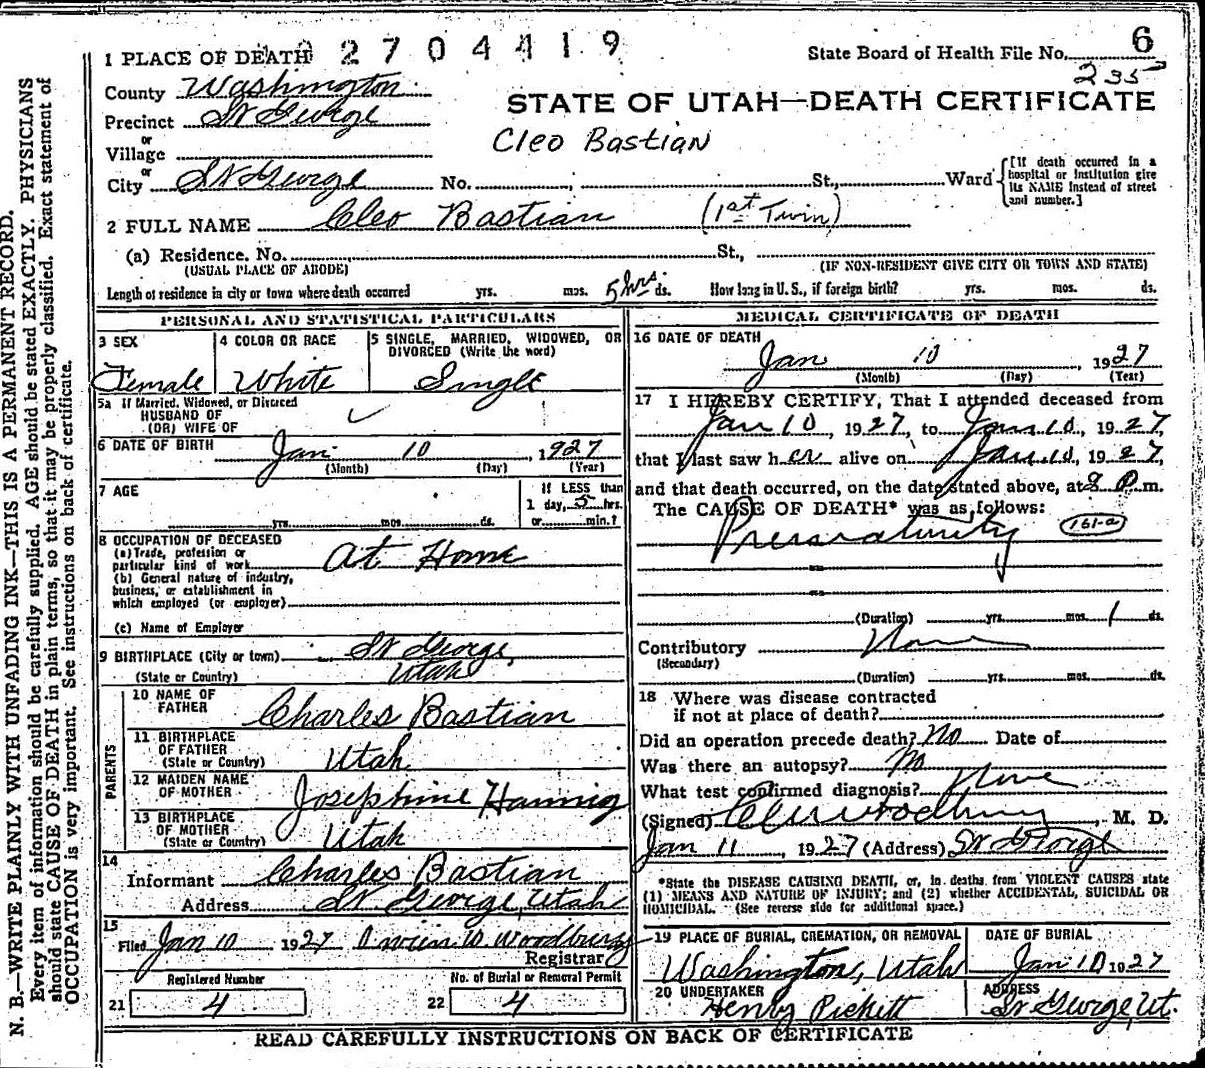 N. B.—WRITE PLAINLY WITH UNFADING INK—THIS IS A PERMANENT RECORD.
Every item of information should be carefully supplied. AGE should be stated EXACTLY. PHYSICIANS
should state CAUSE OF DEATH in plain terms, so that it may be properly classified. Exact statement of
OCCUPATION is very important. See instructions on back of certificate.
1 PLACE OF DEATH
2704419
State Board of Health File No. 6
235
County Washington
STATE OF UTAH—DEATH CERTIFICATE
Precinct St George
Cleo Bastian
or
Village
or
City St George No. , St., Ward
[If death occurred in a
hospital or institution give
its NAME instead of street
and number.]
2 FULL NAME Cleo Bastian (1st Twin)
(a) Residence. No. St.,
(USUAL PLACE OF ABODE)
(IF NON-RESIDENT GIVE CITY OR TOWN AND STATE)
Length of residence in city or town where death occurred yrs. mos. 5 hrs. ds. How long in U. S., if foreign birth? yrs. mos. ds.
PERSONAL AND STATISTICAL PARTICULARS
3 SEX
Female
4 COLOR OR RACE
White
5 SINGLE, MARRIED, WIDOWED, OR
DIVORCED (Write the word)
Single
5a If Married, Widowed, or Divorced
HUSBAND OF
(OR) WIFE OF
6 DATE OF BIRTH Jan 10, 1927
(Month) (Day) (Year)
7 AGE
yrs. mos. ds.
If LESS than
1 day, 5 hrs.
or min.?
8 OCCUPATION OF DECEASED
(a) Trade, profession or
particular kind of work At Home
(b) General nature of industry,
business, or establishment in
which employed (or employer)
(c) Name of Employer
9 BIRTHPLACE (City or town) St George,
(State or Country) Utah
PARENTS
10 NAME OF
FATHER Charles Bastian
11 BIRTHPLACE
OF FATHER
(State or Country) Utah
12 MAIDEN NAME
OF MOTHER Josephine Hannig
13 BIRTHPLACE
OF MOTHER
(State or Country) Utah
14
Informant Charles Bastian
Address St George, Utah
15
Filed Jan 10 1927 Orrin W. Woodbury
Registrar
Registered Number
21 4
No. of Burial or Removal Permit
22 4
MEDICAL CERTIFICATE OF DEATH
16 DATE OF DEATH
Jan 10, 1927
(Month) (Day) (Year)
17 I HEREBY CERTIFY, That I attended deceased from
Jan 10, 1927, to Jan 10, 1927,
that I last saw her alive on Jan 10, 1927,
and that death occurred, on the date stated above, at 8 P. m.
The CAUSE OF DEATH* was as follows:
Prematurity 161-a
(Duration) yrs. mos. 1 ds.
Contributory None
(Secondary)
(Duration) yrs. mos. ds.
18 Where was disease contracted
if not at place of death?
Did an operation precede death? No Date of
Was there an autopsy? No
What test confirmed diagnosis? None
(Signed) Woodbury, M. D.
Jan 11, 1927 (Address) St George
*State the DISEASE CAUSING DEATH, or, in deaths from VIOLENT CAUSES state
(1) MEANS AND NATURE OF INJURY; and (2) whether ACCIDENTAL, SUICIDAL OR
HOMICIDAL. (See reverse side for additional space.)
19 PLACE OF BURIAL, CREMATION, OR REMOVAL
Washington, Utah
DATE OF BURIAL
Jan 10 1927
20 UNDERTAKER
Henry Pickett
ADDRESS
St George, Ut.
READ CAREFULLY INSTRUCTIONS ON BACK OF CERTIFICATE